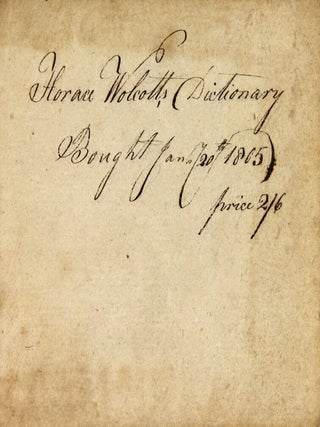 Horace Wolcott's Dictionary
Bought Jany 20th 1805
price 2/6